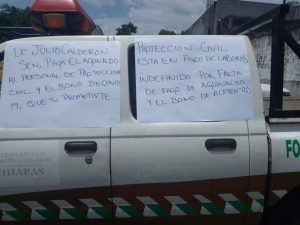 LIC JULIO CALDERON
SEN, PAGA EL AGUINALDO
AL PERSONAL DE PROTECCION
CIVIL Y EL BONO DE COVID
19, QUE TU PROMETISTE...
PROTECCION CIVIL
ESTA EN PARO DE LABORES
INDEFINIDO POR FALTA
DE PAGO DE AGUINALDO
Y EL BONO DE ALIMENTOS
CHIAPAS
FO